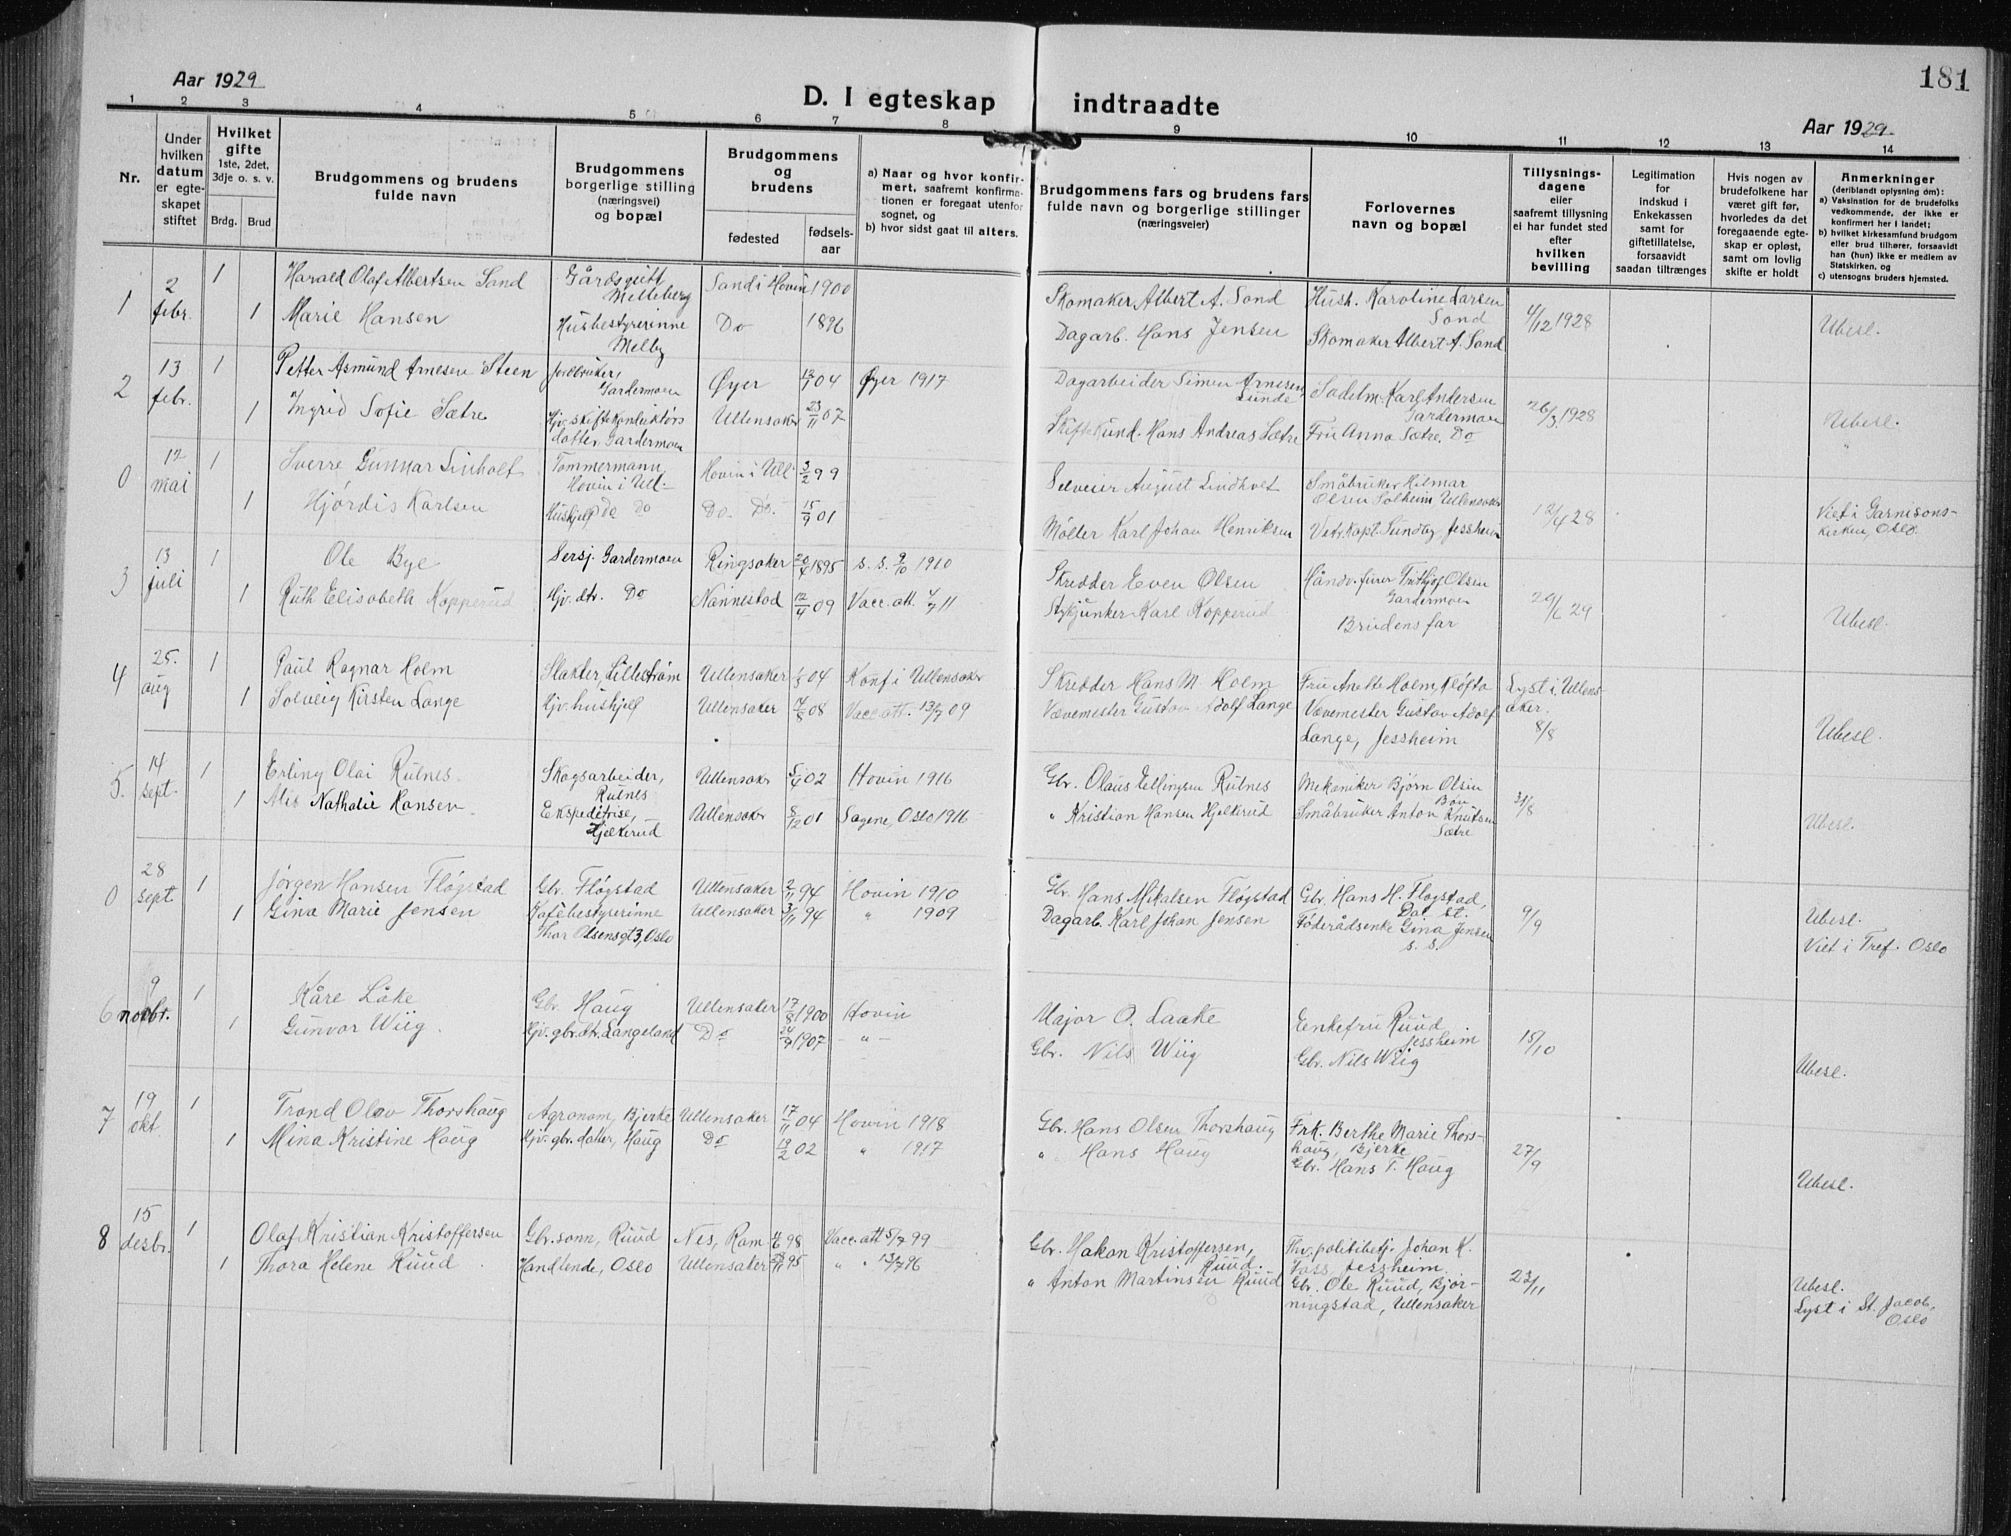 181
Aar 1929
D. I egteskap indtraadte
Aar 1929
1 2 3 4 5 6 7 8 9 10 11 12 13 14
Nr.
Under hvilken datum er egteskapet stiftet
Hvilket gifte
1ste, 2det, 3dje o. s. v.
Brdg. Brud
Brudgommens og brudens fulde navn
Brudgommens borgerlige stilling (næringsvei) og bopæl
Brudgommens og brudens
fødested
fødselsaar
a) Naar og hvor konfirmert, saafremt konfirmationen er foregaat utenfor sognet, og
b) hvor sidst gaat til alters.
Brudgommens fars og brudens fars fulde navn og borgerlige stillinger (næringsveier)
Forlovernes navn og bopæl
Tillysningsdagene eller saafremt tillysning ei har fundet sted efter hvilken bevilling
Legitimation for indskud i Enkekassen samt for giftetillatelse, forsaavidt saadan tiltrænges
Hvis nogen av brudefolkene har været gift før, hvorledes da det foregaaende egteskap er opløst, samt om lovlig skifte er holdt
Anmerkninger
(deriblandt oplysning om):
a) Vaksination for de brudefolks vedkommende, der ikke er konfirmert her i landet;
b) hvilket kirkesamfund brudgom eller brud tilhører, forsaavidt han (hun) ikke er medlem av Statskirken, og
c) utensogns bruders hjemsted.
1 2 febr. 1 Harald Olaf Albertsen Sand Gårdsgutt Melleberg Sand i Hovin 1900 Skomaker Albert A. Sand Hush. Karoline Larsen Sand 4/12 1928 Ubesl.
1 Marie Hansen Husbestyrerinne Melby Do 1896 Dagarb. Hans Jensen Skomaker Albert A. Sand
2 13 febr. 1 Petter Asmund Arnesen Steen Jordbruker, Gardermoen Øyer 13/1 04 Øyer 1917 Dagarbeider Simen Arnesen Lunde Sadelm. Karl Andersen Gardermoen 26/3 1928 Ubesl.
1 Ingrid Sofie Sætre Hjv. skiftekonduktørs datter. Gardermoen Ullensaker 23/11 07 Skiftekund. Hans Andreas Sætre Fru Anna Sætre, Do "
0 12 mai 1 Sverre Gunnar Lindholt Tømmermann, Hovin i Ull. Hovin i Ull. 3/2 99 Selveier August Lindholt Småbruker Hilmar Olsen Solheim Ullensaker 12/4 28 Viet i Garnisonskirken, Oslo.
1 Hjørdis Karlsen Hushjelp Do Do Do. Do. 15/9 01 Møller Karl Johan Henriksen Vetr. Kapt. Sundby, Jessheim
3 13 juli 1 Ole Bye Sersj. Gardermoen Ringsaker 20/4 1895 s. s. 9/10 1910 Skredder Even Olsen Håndv. furer Trithjof Olsen Gardermoen 29/6 29 Ubesl.
1 Ruth Elisabeth Kopperud Hjv. dtr. Do Nannestad 12/4 09 Vacc. att. 4/7 11 Stykjunker Karl Kopperud Brudens far
4 25. aug 1 Paul Ragnar Holm Slakter, Lillestrøm Ullensaker 1/5 04 Konf i Ullensaker Skredder Hans M. Holm Fru Anette Holm, Kløfta Lyst i Ullensaker. 8/8 Ubesl.
1 Solveig Kirsten Lange Hjv. hushjelp Ullensaker 7/8 08 Vacc att. 13/7 09 Vævemester Gustav Adolf Lange Vævemester Gustav Adolf Lange, Jessheim
5. 14 sept. 1 Erling Olai Rulnes Skogsarbeider, Rulnes Ullensaker 5/4 02 Hovin 1916 Gbr. Olaus Ellingsen Rulnes Mekaniker Bjørn Olsen Bon 31/8 Ubesl.
1 Nathalie Hansen Ekspeditrise, Hjelkerud Ullensaker 8/12 01 Sagene, Oslo 1916 " Kristian Hansen Hjelkerud Småbruker Anton Knutsen Sætre
0 28 sept 1 Jørgen Hansen Fløgstad Gbr. Fløgstad Ullensaker 2/11 94 Hovin 1910 Gbr. Hans Mikalsen Fløgstad Gbr. Hans H. Fløgstad, Do. st. 9/9 Ubesl. Viet i Tref. Oslo
1 Gina Marie Jensen Kafébestyrerinne Thor Olsensgt 3, Oslo Ullensaker 3/11 94 " 1909 Dagarb. Karl Johan Jensen Føderådsenke Gina Jensen s. s.
6 9 novbr. 1 Kåre Låke Gbr. Haug Ullensaker 17/8 1900 Hovin Major O. Laake Enkefru Ruud Jessheim 15/10 Ubesl.
1 Gunvor Wiig Hjv. gbr. dtr. Langeland Do 24/9 1907 – " – Gbr. Nils Wiig Gbr. Nils Wiig
7 19 okt. 1 Trond Olav Thorshaug Agronom, Bjerke Ullensaker 17/11 04 Hovin 1918 Gbr. Hans Olsen Thorshaug Frk. Berthe Marie Thorshaug, Bjerke 27/9 Ubesl.
1 Mina Kristine Haug Hjv. gbr. datter, Haug Do 19/2 02 " 1917 " Hans Haug Gbr. Hans T. Haug
8 15 desbr. 1 Olaf Kristian Kristoffersen Gbr. sønn, Ruud Nes, Rom. 4/6 98 Vacc. att 5/7 99 Gbr. Hakon Kristoffersen, Ruud. Thv. politibetj. Johan K. Foss, Jessheim. 23/11 Ubesl. Lyst i St. Jacob, Oslo
1 Thora Helene Ruud Handlende, Oslo Ullensaker 28/11 95 " " 13/7 96 " Anton Martinsen Ruud Gbr. Ole Ruud, Bjørningstad, Ullensaker